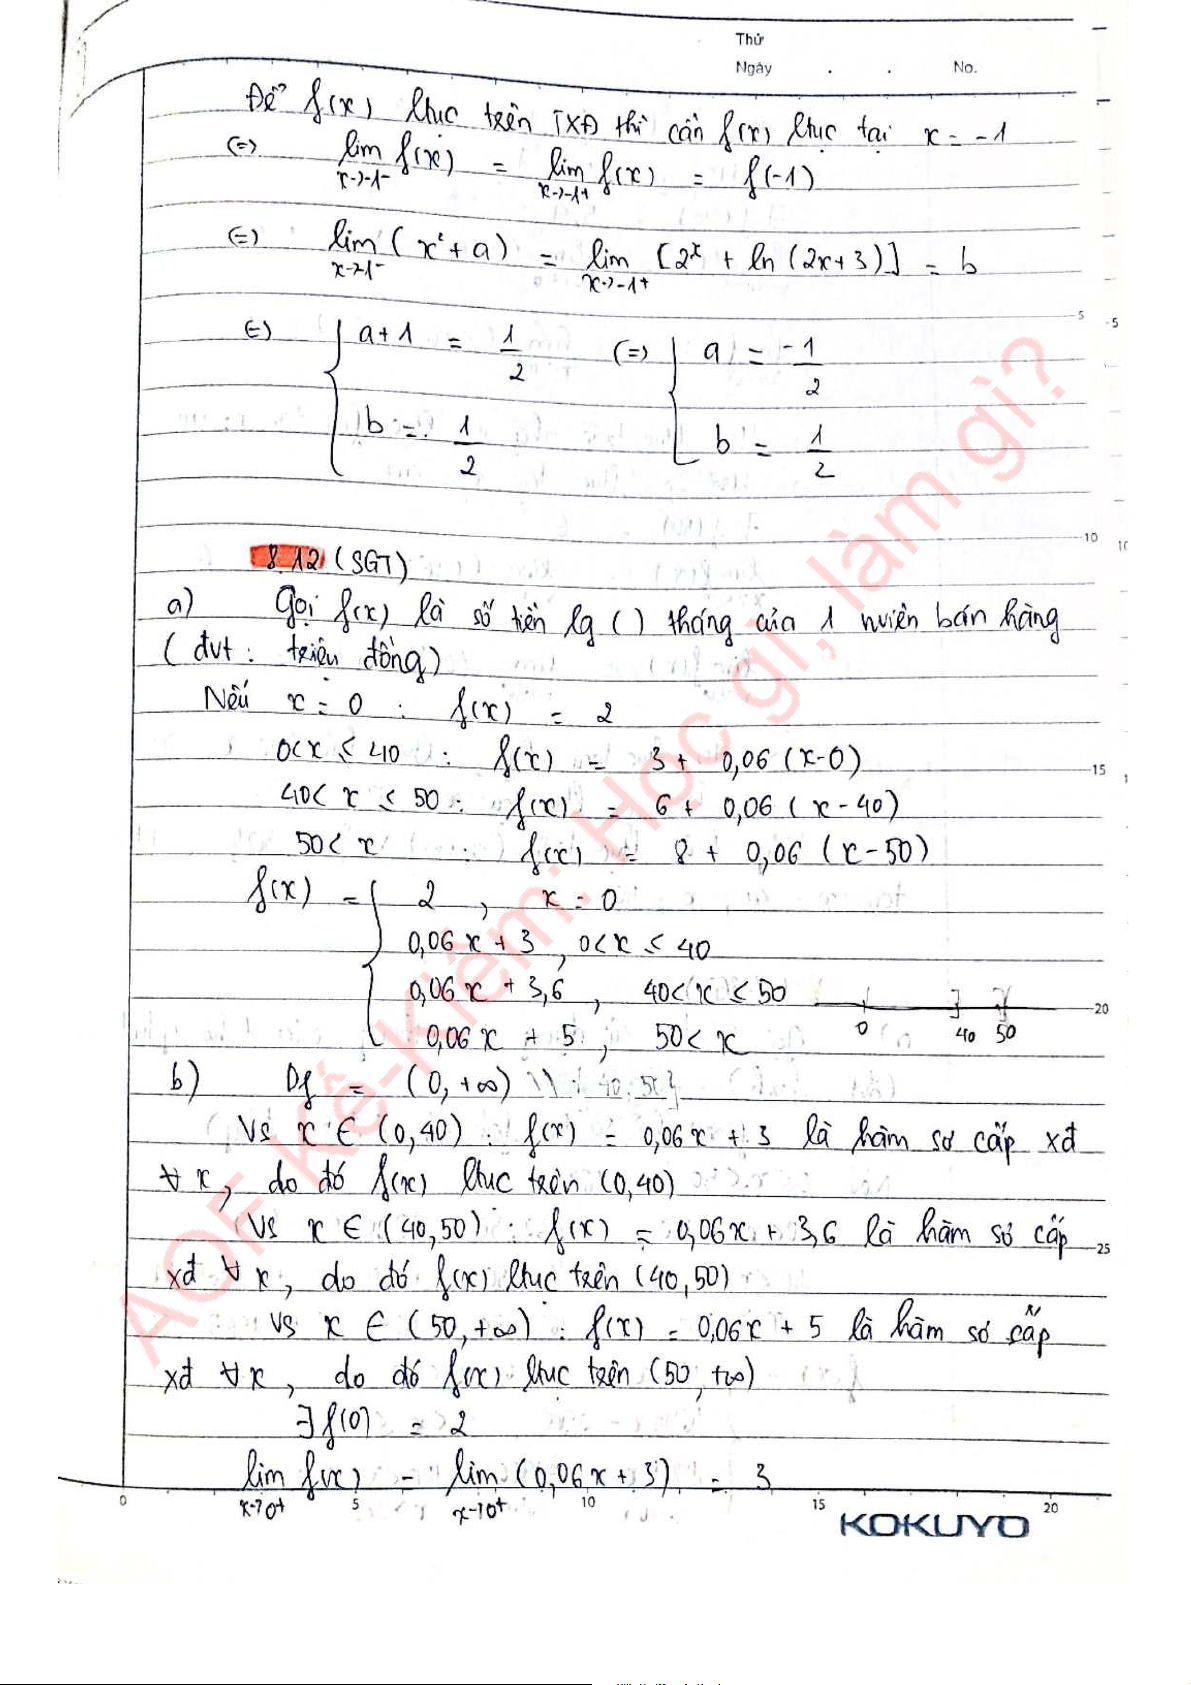 Thứ
Ngày . . No.
Để f(x) ltục trên TXĐ thì cần f(x) ltục tại x = -1
(=) lim x->-1⁻ f(x) = lim x->-1⁺ f(x) = f(-1)
(=) lim x->-1⁻ (x² + a) = lim x->-1⁺ [2ˣ + ln(2x+3)] = b
(=) { a+1 = 1/2 (=) { a = -1/2
b = 1/2 b = 1/2
8.12 (SGT)
a) Gọi f(x) là số tiền lg ( ) tháng của 1 nviên bán hàng
(đvt : triệu đồng)
Nếu x = 0 : f(x) = 2
0<x ≤ 40 : f(x) = 3 + 0,06 (x-0)
40< x ≤ 50 : f(x) = 6 + 0,06 (x-40)
50< x : f(x) = 8 + 0,06 (x-50)
f(x) = { 2 , x = 0
0,06x + 3 , 0<x ≤ 40
0,06x + 3,6 , 40<x ≤ 50
0 40 50
0,06x + 5 , 50<x
b) Df = (0, +∞) \ { 40, 50}
Vs x ∈ (0,40) : f(x) = 0,06x + 3 là hàm sơ cấp xđ
∀x, do đó f(x) ltục trên (0,40)
Vs x ∈ (40,50) : f(x) = 0,06x + 3,6 là hàm sơ cấp
xđ ∀x, do đó f(x) ltục trên (40,50)
Vs x ∈ (50,+∞) : f(x) = 0,06x + 5 là hàm sơ cấp
xđ ∀x, do đó f(x) ltục trên (50,+∞)
∃f(0) = 2
lim x->0⁺ f(x) = lim x->0⁺ (0,06x + 3) = 3
0 5 10 15 20
KOKUYO
5
10
15
20
25
AOF Kế-Kiểm: Học gì, làm gì?